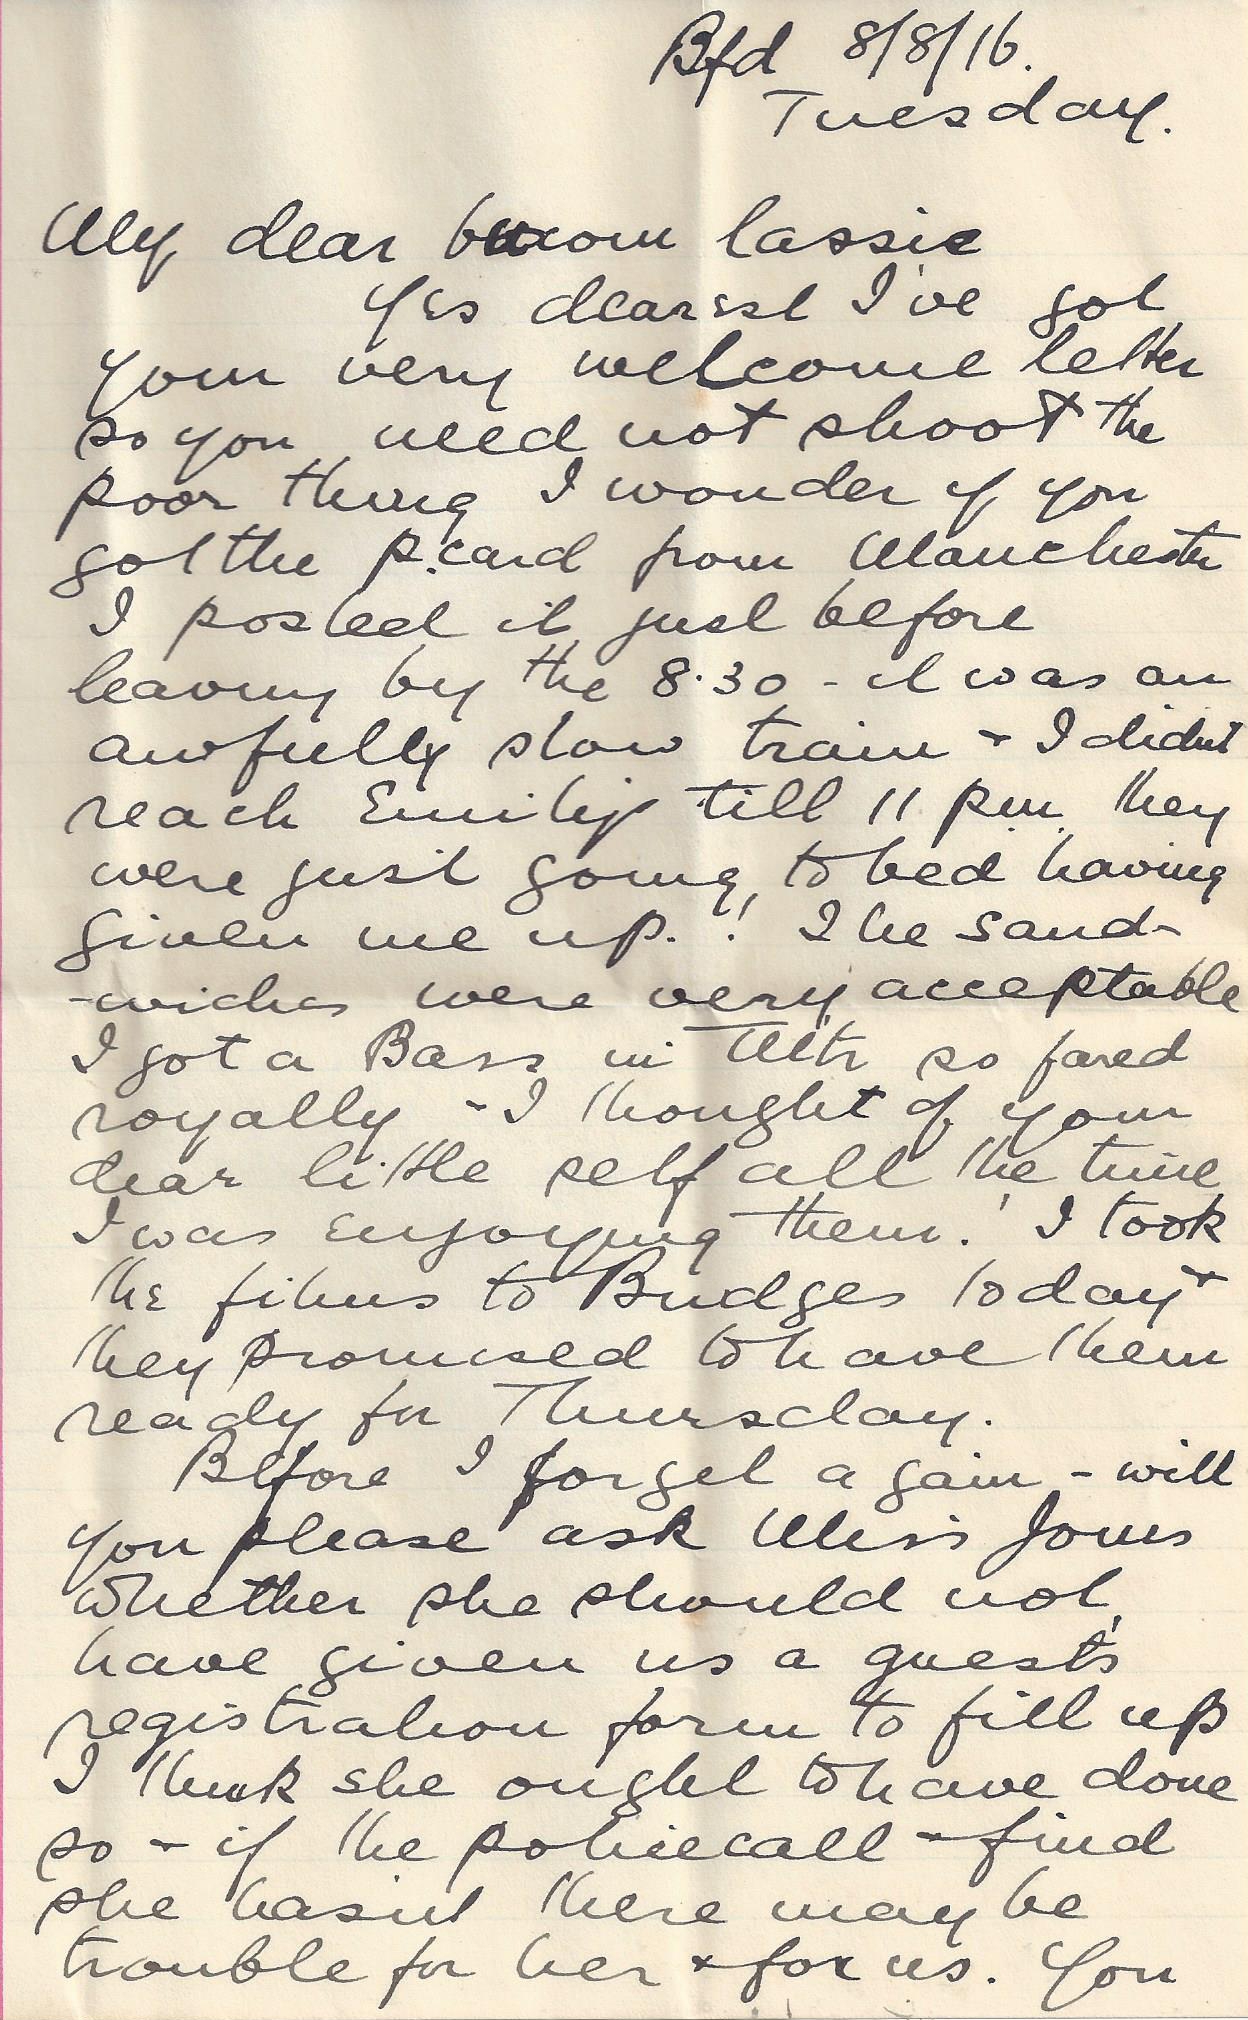 Bfd 8/8/16.
Tuesday.
My dear buxom lassie
Yes dearest I've got
your very welcome letter
so you need not shoot the
poor thing I wonder if you
got the p.card from Manchester
I posted it just before
leaving by the 8.30 - it was an
awfully slow train & I didnt
reach Emily's till 11 pm they
were just going to bed having
given me up.! The sand-
-wiches were very acceptable
I got a Bass in M/tr so fared
royally - I thought of your
dear little self all the time
I was enjoying them! I took
the films to Budges today &
they promised to have them
ready for Thursday.
Before I forget again - will
you please ask Miss Jones
whether she should not
have given us a guest's
registration form to fill up
I think she ought to have done
so & if the police call & find
she hasnt there may be
trouble for her & for us. You